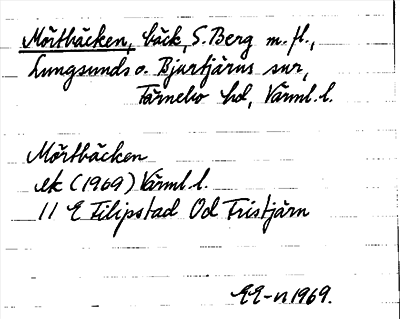 Mörtbäcken, bäck, S. Berg m. fl.,
Lungsunds o. Bjurtjärns snr,
Färnebo hd, Värml. l.
Mörtbäcken
ek (1969) Värml l.
11 E Filipstad Od Tristjärn
EE-n 1969.